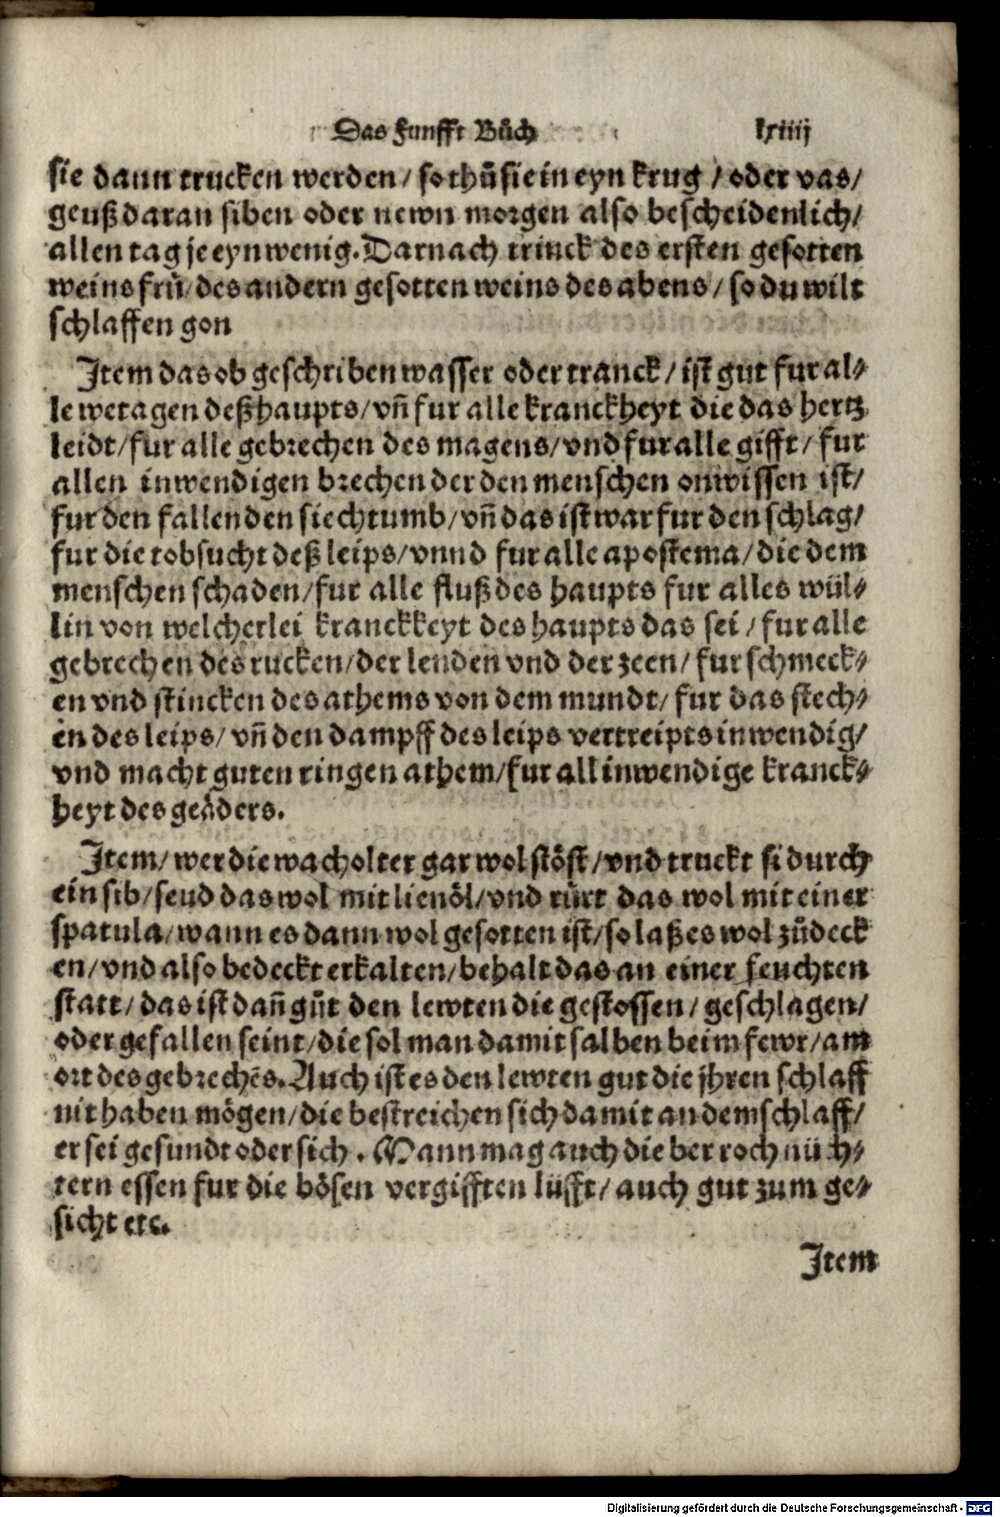 Das funfft Bůch lxiiij
sie dann trucken werden / so thů sie in eyn krug / oder vas /
geuß daran siben oder newn morgen also bescheidenlich /
allen tag je eyn wenig. Darnach trinck des ersten gesotten
weins frů / des andern gesotten weins des abens / so du wilt
schlaffen gon
Item das ob geschriben wasser oder tranck / ist gůt fur al⸗
le wetagen deß haupts / vñ fur alle kranckheyt die das hertz
leidt / fur alle gebrechen des magens / vnd fur alle gifft / fur
allen inwendigen brechen der den menschen onwissen ist /
fur den fallenden siechtumb / vñ das ist war fur den schlag /
fur die tobsucht deß leips / vnnd fur alle apostema / die dem
menschen schaden / fur alle fluß des haupts fur alles wül⸗
lin von welcherlei kranckkeyt des haupts das sei / fur alle
gebrechen des rucken / der lenden vnd der zeen / fur schmeck⸗
en vnd stincken des athems von dem mundt / fur das stech⸗
en des leips / vñ den dampff des leips vertreipts inwendig /
vnd macht guten ringen athem / fur all inwendige kranck⸗
heyt des geäders.
Item / wer die wacholter gar wol stöst / vnd truckt si durch
ein sib / seud das wol mit lienöl / vnd růrt das wol mit einer
spatula / wann es dann wol gesotten ist / so laß es wol zůdeck
en / vnd also bedeckt erkalten / behalt das an einer feuchten
statt / das ist dañ gůt den lewten die gestossen / geschlagen /
oder gefallen seint / die sol man damit salben beim fewr / am
ort des gebrechēs. Auch ist es den lewten gut die jhren schlaff
nit haben mögen / die bestreichen sich damit an dem schlaff /
er sei gesundt oder sich. Mann mag auch die ber roch nüch⸗
tern essen fur die bösen vergifften lüfft / auch gut zum ge⸗
sicht etc.
Item
Digitalisierung gefördert durch die Deutsche Forschungsgemeinschaft - DFG